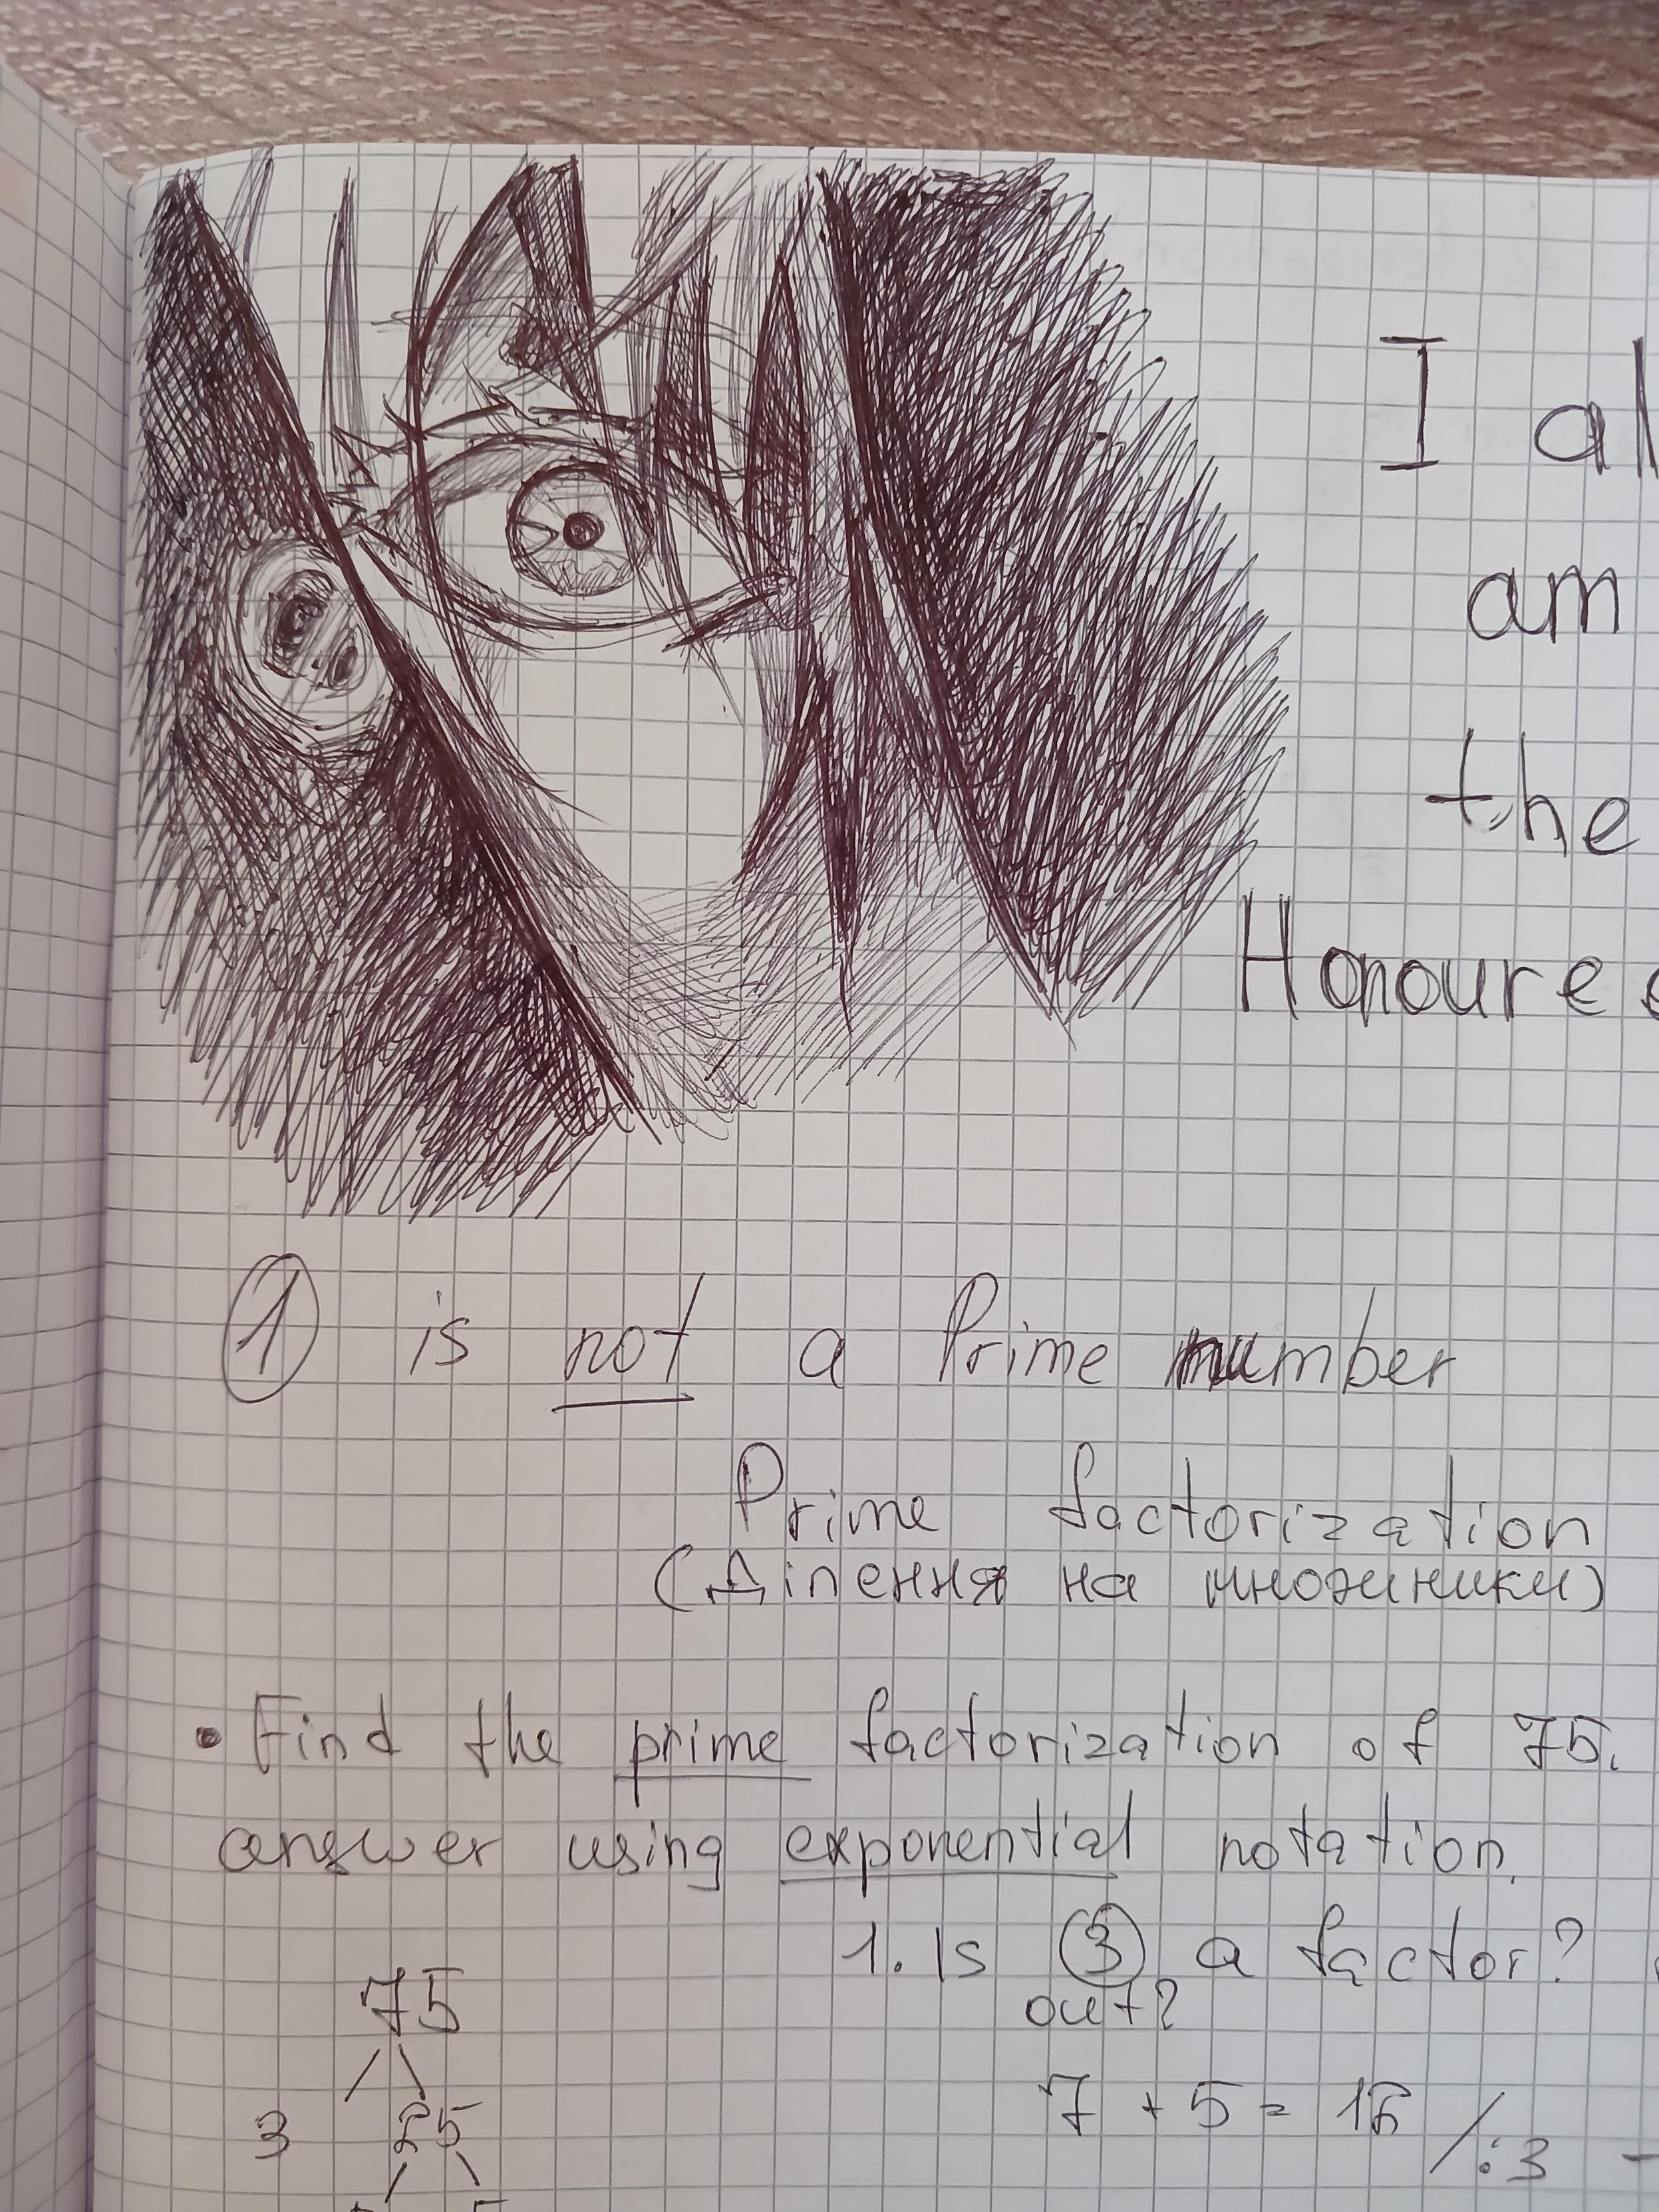 I al
am
the
Honoured
1 is not a Prime number
Prime factorization
(Ділення на множники)
• Find the prime factorization of 75.
answer using exponential notation.
1. Is 3 a factor?
out?
75
3 25
7 + 5 = 12 /:3 -